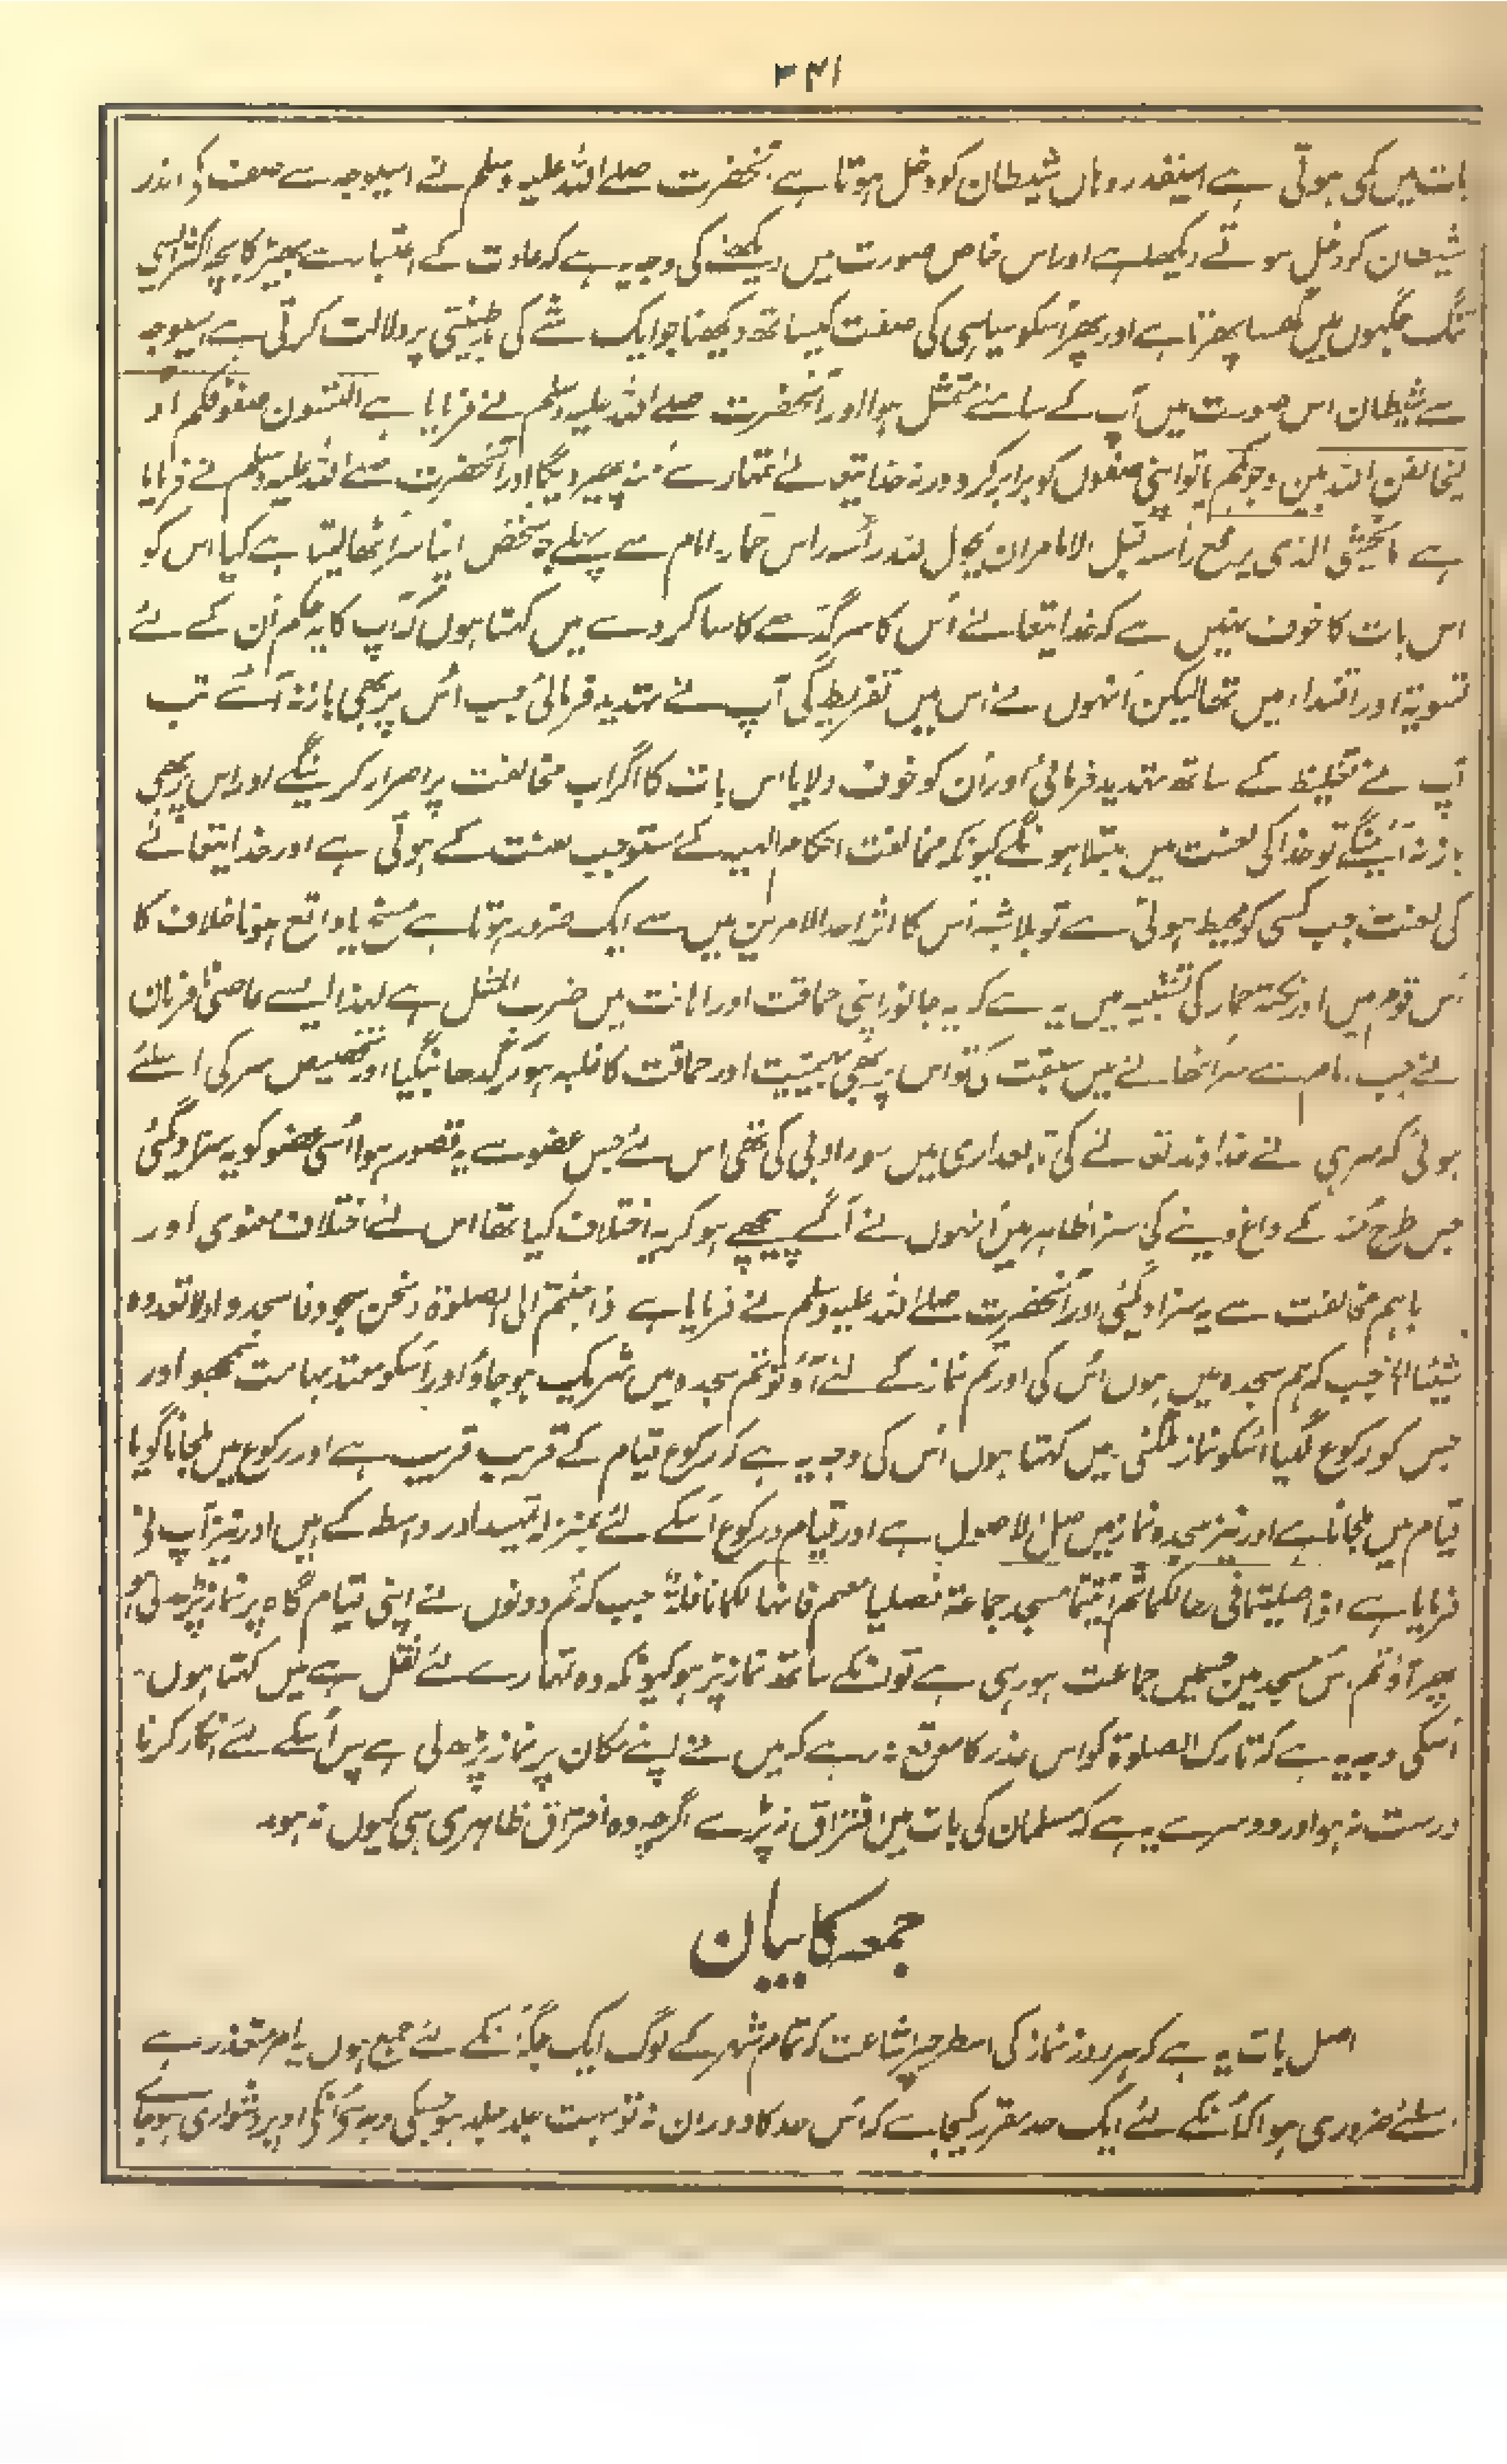 ۳۴۱
بات میں کمی ہوتی ہے اسیقدر وہاں شیطان کو دخل ہوتا ہے آنحضرت صلے اللہ علیہ وسلم نے اسیوجہ سے صف کے اندر
شیطان کو دخل ہوتے دیکھا ہے اور اس خاص صورت میں دیکھنے کی وجہ یہ ہے کہ عادت کے اعتبار سے بھیڑ کا بچہ اکثر ایسی
تنگ جگہوں میں گھسا پھرتا ہے اور پھر اُسکو سیاہی کی صفت کیساتھ دیکھنا جو ایک شے کی بدطینتی پر دلالت کرتی ہے اسیوجہ
سے شیطان اس صورت میں آپ کے سامنے متمثل ہوا اور آنحضرت صلے اللہ علیہ وسلم نے فرمایا ہے لتسون صفوفکم او
لیخالفن اللہ بین وجوہکم یا تو اپنی صفوں کو برابر کرو ورنہ خدایتعالے تمہارے منہ پھیر دیگا اور آنحضرت صلے اللہ علیہ وسلم نے فرمایا
ہے اما یخشی الذی یرفع راسہ قبل الامام ان یحول اللہ راسہ راس حمار۔ امام سے پہلے جو شخص اپنا سر اُٹھا لیتا ہے کیا اس کو
اس بات کا خوف نہیں ہے کہ خدایتعالے اُس کا سر گدھے کا سا کر دے میں کہتا ہوں کہ آپ کا یہ حکم اُن کے لئے
تسویۃ اور اقتداء میں تھا لیکن اُنہوں نے اس میں تفریط کی آپ نے تہدید فرمائی جب اُس پر بھی باز نہ آئے تب
آپ نے تغلیظ کے ساتھ تہدید فرمائی اور اُن کو خوف دلایا اس بات کا اگر اب مخالفت پر اصرار کرینگے اور اس پر بھی
باز نہ آئینگے تو خدا کی لعنت میں مبتلا ہونگے کیونکہ مخالفت احکام الہیہ کے مستوجب لعنت کے ہوتی ہے اور خدایتعالے
کی لعنت جب کسی کو محیط ہوتی ہے تو بلاشبہ اُس کا اثر احد الامرین میں سے ایک ضرور ہوتا ہے مسخ یا واقع ہونا خلاف کا
اُس قوم میں اور نکتہ حمار کی تشبیہ میں یہ ہے کہ یہ جانور اپنی حماقت اور اہانت میں ضرب المثل ہے لہذا ایسے عاصی نافرمان
نے جب امام سے سر اُٹھانے میں سبقت کی تو اس پر بھی بہیمیت اور حماقت کا غلبہ ہو کر گدھا بنگیا اور تخصیص سر کی اسلئے
ہوئی کہ سر ہی نے خداوند تعالے کی تابعداری میں سوء ادبی کی تھی اس لئے جس عضو سے یہ قصور ہوا اُسی عضو کو یہ سزا دیگئی
جس طرح منہ کے داغ دینے کی سزا ظاہر میں اُنہوں نے آگے پیچھے ہو کر یہ اختلاف کیا تھا اس لئے اختلاف معنوی اور
باہم مخالفت سے یہ سزا دیگئی اور آنحضرت صلے اللہ علیہ وسلم نے فرمایا ہے اذا جئتم الی الصلوۃ ونحن سجود فاسجدوا ولا تعدوہ
شیئا الخ جب کہ ہم سجدہ میں ہوں اُس کی اور تم نماز کے لئے آؤ تو تم سجدہ میں شریک ہو جاؤ اور اُسکو معتدبہا مت سمجھو اور
جس کو رکوع ملگیا اُسکو نماز ملگئی۔ میں کہتا ہوں اُس کی وجہ یہ ہے کہ رکوع قیام کے قریب قریب ہے اور رکوع میں ملجانا گویا
قیام میں ملجانا ہے اور نیز سجدہ نماز میں اصل الاصول ہے اور قیام و رکوع اُسکے لئے بمنزلہ تمہید اور واسطہ کے ہیں اور نیز آپ نے
فرمایا ہے اذا صلیتما فی رحالکما ثم اتیتما مسجد جماعۃ فصلیا معہم فانہا لکما نافلۃ جب کہ تم دونوں نے اپنی قیام گاہ پر نماز پڑھ لی اور
پھر آؤ تم اُس مسجد میں جسمیں جماعت ہو رہی ہے تو اُنکے ساتھ نماز پڑھو کیونکہ وہ تمہارے لئے نفل ہے میں کہتا ہوں۔
اُسکی وجہ یہ ہے کہ تارک الصلوۃ کو اس عذر کا موقع نہ رہے کہ میں نے اپنے مکان پر نماز پڑھ لی ہے پس اُسکے لئے انکار کرنا
درست نہ ہو اور دوسرے یہ ہے کہ مسلمان کی بات میں افتراق نہ پڑے اگرچہ وہ افتراق ظاہری ہی کیوں نہ ہو۔
جمعہ کا بیان
اصل بات یہ ہے کہ ہر روز نماز کی اسطرحپر اشاعت کہ تمام شہر کے لوگ ایک جگہ اُنکے لئے جمع ہوں یہ امر متعذر ہے
اسلئے ضروری ہوا کہ اُنکے لئے ایک حد مقرر کیجاے کہ اُس حد کا دوران نہ تو بہت جلد جلد ہو جسکی وجہ سے اُنکی اوپر دشواری ہو جاے